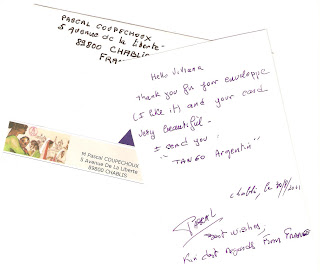 PASCAL COUPECHOUX
5 Avenue de la Liberté
89800 CHABLIS
FRAN
Hello
thank you for your enveloppe
(I like it) and your card
very beautiful -
I send you:
"TANGO Argentin"
Chablis, le
PASCAL
Best wishes,
Kindest regards from France
M Pascal COUPECHOUX
5 Avenue De La Liberte
89800 CHABLIS